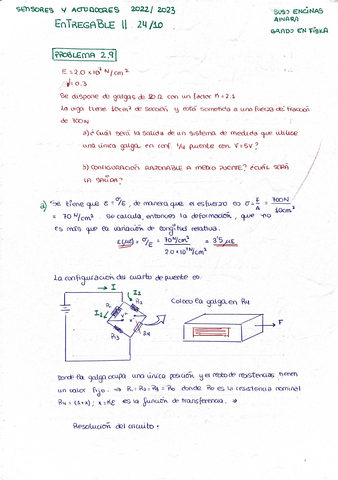 SENSORES Y ACTUADORES 2022/2023
ENTREGABLE 11 24/10
SUSO ENCINAS
AINARA
GRADO EN FÍSICA
PROBLEMA 2.9
E = 2.0 × 10⁷ N/cm²
ν = 0.3
Se dispone de galgas de 120 Ω con un factor K = 2.1
La viga tiene 10cm² de sección y está sometida a una fuerza de tracción
de 700N
a) ¿Cuál será la salida de un sistema de medida que utilise
una única galga en conf. 1/4 puente con V=5V?
b) CONFIGURACIÓN RAZONABLE A MEDIO PUENTE? ¿CUÁL SERÁ
LA SALIDA?
a) Se tiene que ε = σ/E, de manera que el esfuerzo es σ = F/A = 700N/10cm²
= 70 N/cm². Se calcula, entonces la deformación, que no
es más que la variación de longitud relativa.
= σ/E = 70 N/cm² / 2.0×10⁷ N/cm² = 3'5 με
La configuración de cuarto de puente es:
I
I₂
I₁
R₁
R₂
R₃
R₄
Coloco la galga en R₄
F
Donde la galga ocupa una única posición y el resto de resistencias tienen
un valor fijo. → R₁ = R₂ = R₃ = R₀ donde R₀ es la resistencia nominal
R₄ = (1+x); x = Kε es la función de transferencia.
Resolución del circuito: